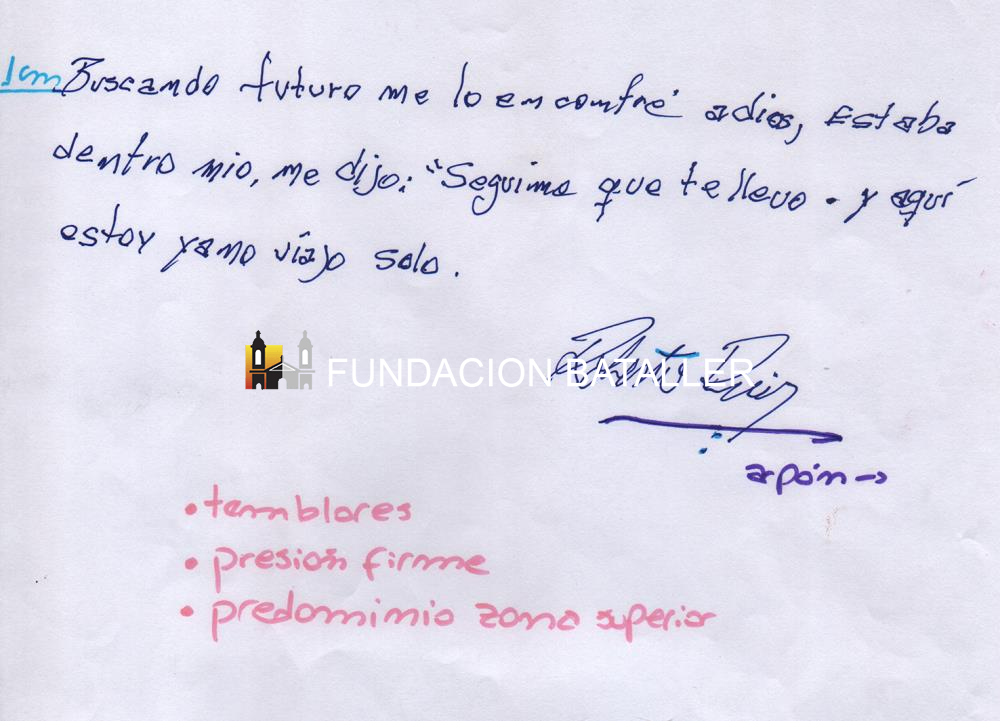 1cm Buscando futuro me lo encontré adios, Estaba
dentro mio, me dijo: "Seguime que te llevo. y aquí
estoy yamo viajo solo.
FUNDACION BATALLER
Roberto Ruiz
arpón →
• temblores
• presión firme
• predominio zona superior